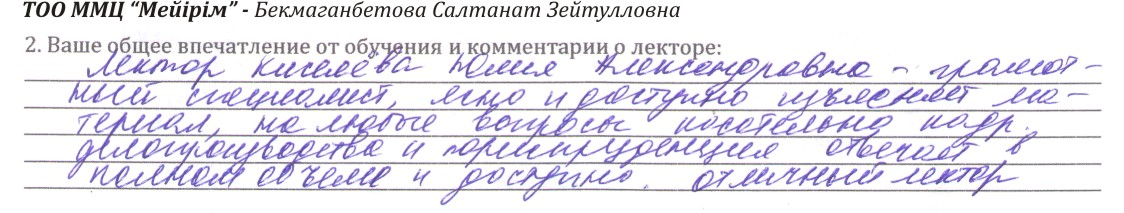 ТОО ММЦ “Мейірім” - Бекмаганбетова Салтанат Зейтулловна
2. Ваше общее впечатление от обучения и комментарии о лекторе:
Лектор Киселёва Юлия Александровна - грамот-
ный специалист, ясно и доступно изъясняет ма-
териал, на любые вопросы касательно кадр.
делопроизводства и юриспруденция отвечает в
полном объеме и доступно. отличный лектор